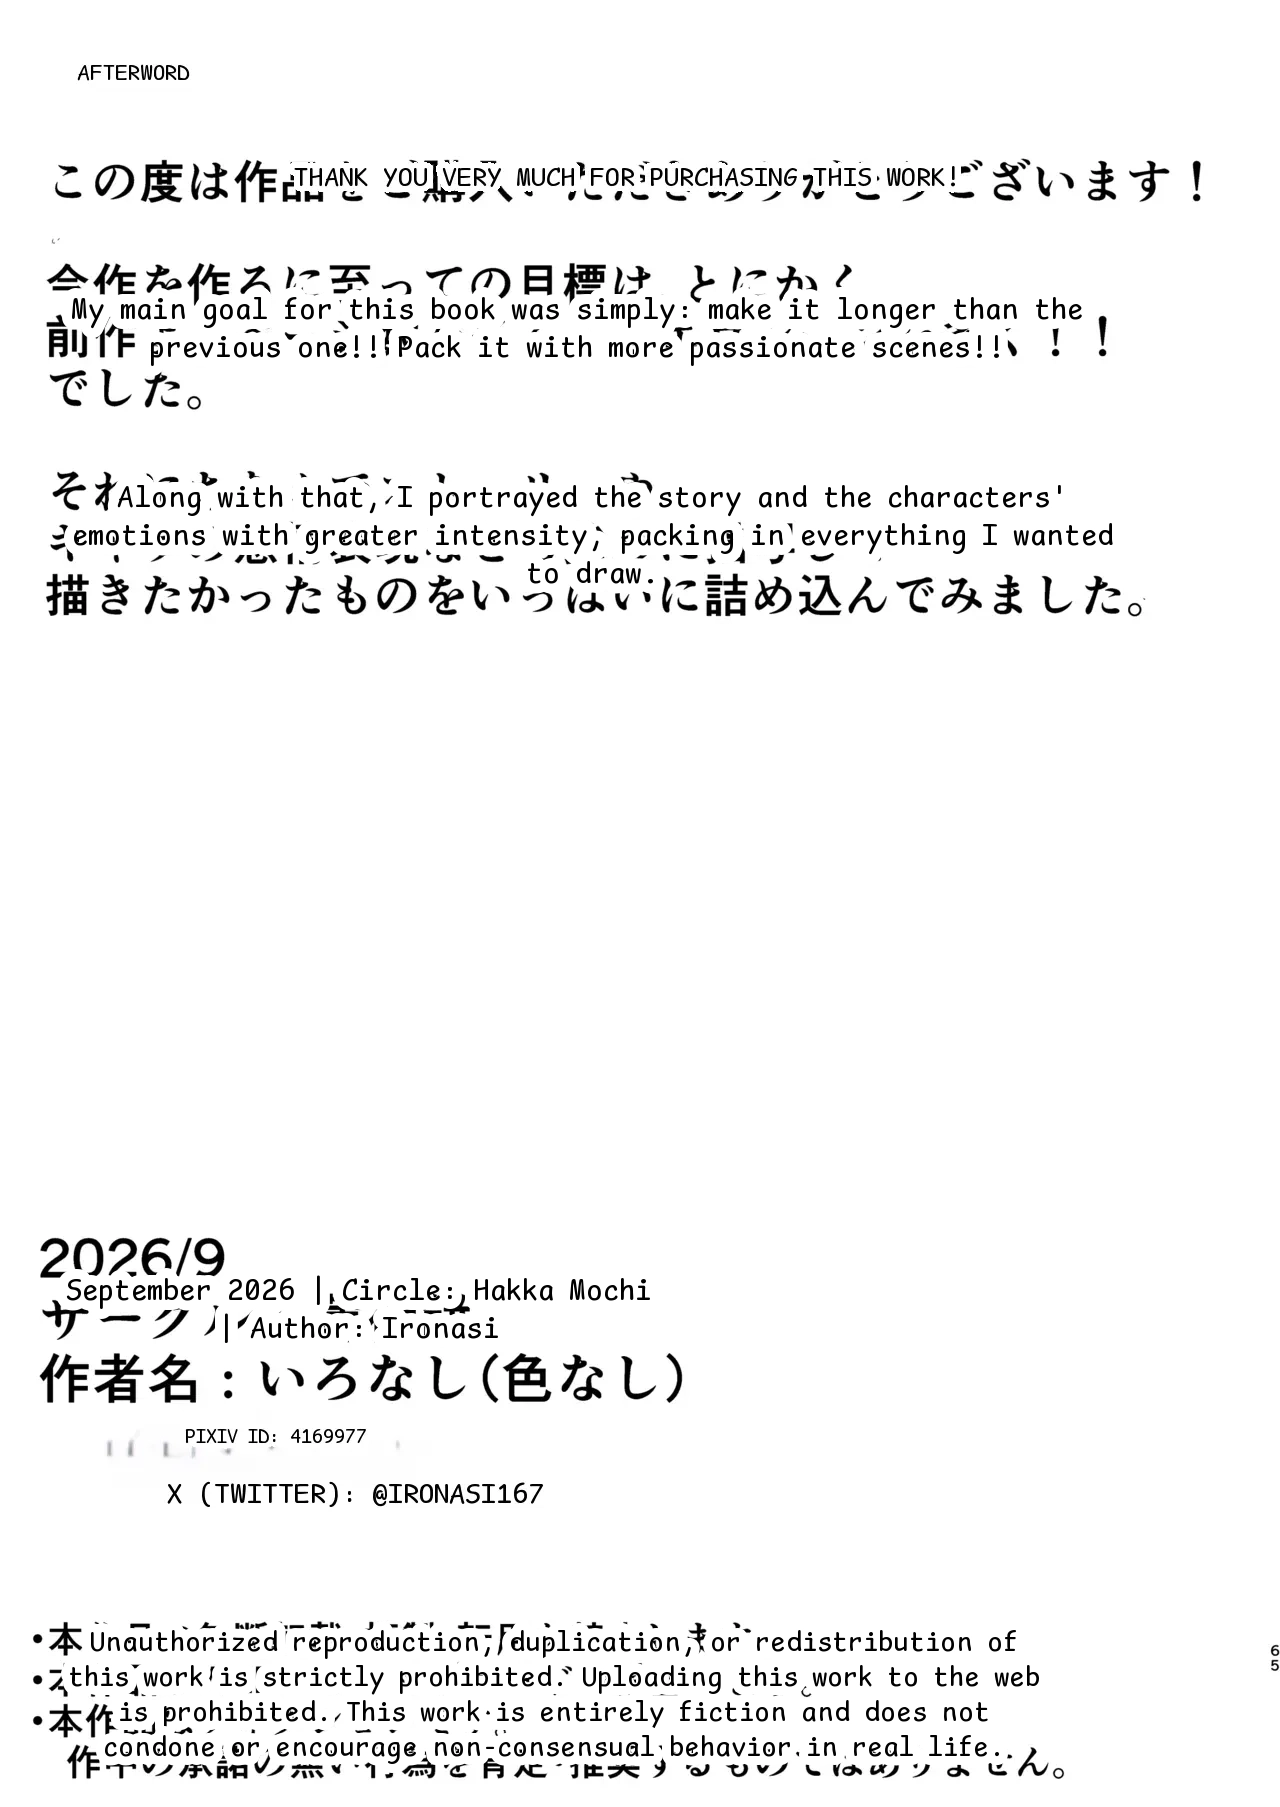 AFTERWORD
この度は作品
THANK YOU VERY MUCH FOR PURCHASING THIS WORK!
ございます！
今作を作るに至っての目標は、とにかく
My main goal for this book was simply: make it longer than the
前作
previous one!!! Pack it with more passionate scenes!!
！！
でした。
Along with that, I portrayed the story and the characters'
emotions with greater intensity, packing in everything I wanted
to draw.
描きたかったものをいっぱいに詰め込んでみました。
2026/9
September 2026 | Circle: Hakka Mochi
サークル
| Author: Ironasi
作者名：いろなし（色なし）
PIXIV ID: 4169977
X (TWITTER): @IRONASI167
・本
Unauthorized reproduction, duplication, or redistribution of
this work is strictly prohibited. Uploading this work to the web
・本作
is prohibited. This work is entirely fiction and does not
condone or encourage non-consensual behavior in real life.
作中の承諾の無い行為を肯定・推奨するものではありません。
65